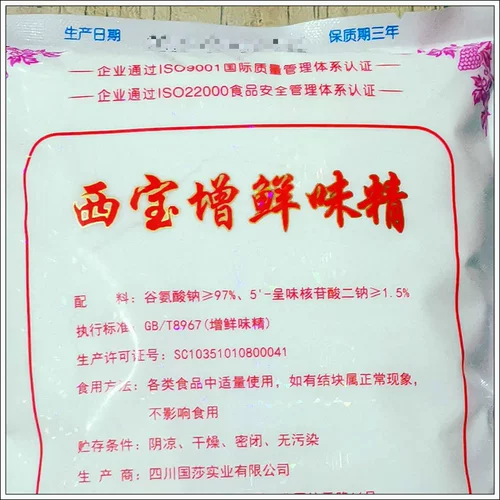 生产日期 保质期三年
企业通过ISO9001国际质量管理体系认证
企业通过ISO22000食品安全管理体系认证
西宝增鲜味精
配 料：谷氨酸钠≥97%、5'-呈味核苷酸二钠≥1.5%
执行标准：GB/T8967(增鲜味精)
生产许可证号：SC10351010800041
食用方法：各类食品中适量使用，如有结块属正常现象，
不影响食用
贮存条件：阴凉、干燥、密闭、无污染
生 产 商：四川国莎实业有限公司